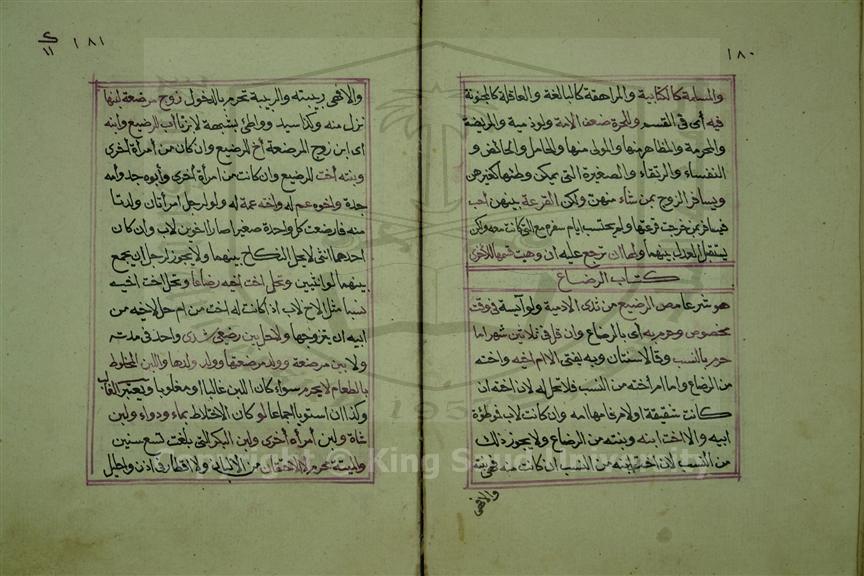 ١٨٠
والمسلمة كالكتابية والمراهقة كالبالغة والعاقلة كالمجنونة
فيه أى فى القسم وللحرة ضعف الامة ولو ذمية والمريضة
والمحرمة والمظاهر منها والمولى منها والحامل والحائض و
النفساء والرتقاء والصغيرة التى يمكن وطئها كغيرهن
ويسافر الزوج بمن شاء منهن ولكن القرعة بينهن أحب
فيسافر بمن خرجت قرعتها ولم يحتسب ايام سفره مع التى كانت معه ولكن
يستقبل العدل بينهما ولها ان ترجع عليه ان وهبت قسمها للاخرى
كتاب الرضاع
هو شرعا مص الرضيع من ثدى الادمية ولو آيسة فى وقت
مخصوص وحرم به أى بالرضاع وان قل فى ثلاثين شهرا ما
حرم بالنسب وبه يفتى الا ام اخيه واخته
من الرضاع واما ام اخته من النسب فلا تحل له لان اخته ان
كانت شقيقة اولام فامها امه وان كانت لاب فموطؤة
ابيه والا اخت ابنه وبنته من الرضاع ولا يجوز ذلك
من النسب لان اخت ابنه من النسب ان كانت منه فهى بنته
والا فهى
١٨١
١١
والا فهى ربيبته والربيبة تحرم بالدخول زوج مرضعة لبنها
نزل منه وكذا سيد وواطئ بشبهة لا بزنا أب للرضيع وابنه
اى ابن زوج المرضعة أخ للرضيع وان كان من امرأة اخرى
وبنته أخت للرضيع وان كانت من امرأة اخرى وأبوه جد وأمه
جدة واخوه عم له واخته عمة له ولو لرجل امرأتان ولدتا
منه فارضعت كل واحدة صغيرا صارا اخوين لاب وان كان
احدهما انثى لا يحل النكاح بينهما ولا يجوز لرجل ان يجمع
بينهما لو انثيين وتحل اخت أخيه رضاعا وتحل اخت اخيه
نسبا مثل الاخ لاب اذا كانت له اخت من ام حل لاخيه من
ابيه ان يتزوجها ولا حل بين رضيعى ثدى واحد فى مدته
ولا بين مرضعة وولد مرضعتها وولد ولدها واللبن المخلوط
بالطعام لا يحرم سواء كان اللبن غالبا او مغلوبا ويعتبر الغالب
وكذا ان استويا اجماعا لو كان الاختلاط بماء ودواء ولبن
شاة ولبن أمرأه أخرى ولبن البكر التى بلغت تسع سنين
والميتة محرم لا الاحتقان من الالبان ولا اقطار فى اذن واحليل
Copyright © King Saud University
1957